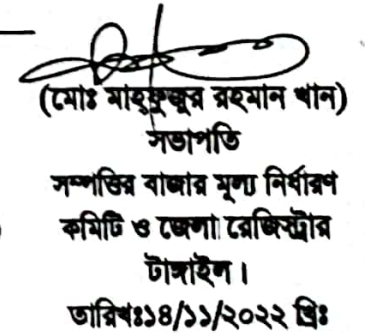 (মোঃ মাহ্‌ফুজুর রহমান খান)
সভাপতি
সম্পত্তির বাজার মূল্য নির্ধারণ
কমিটি ও জেলা রেজিস্ট্রার
টাঙ্গাইল।
তারিখঃ১৪/১১/২০২২ খ্রিঃ